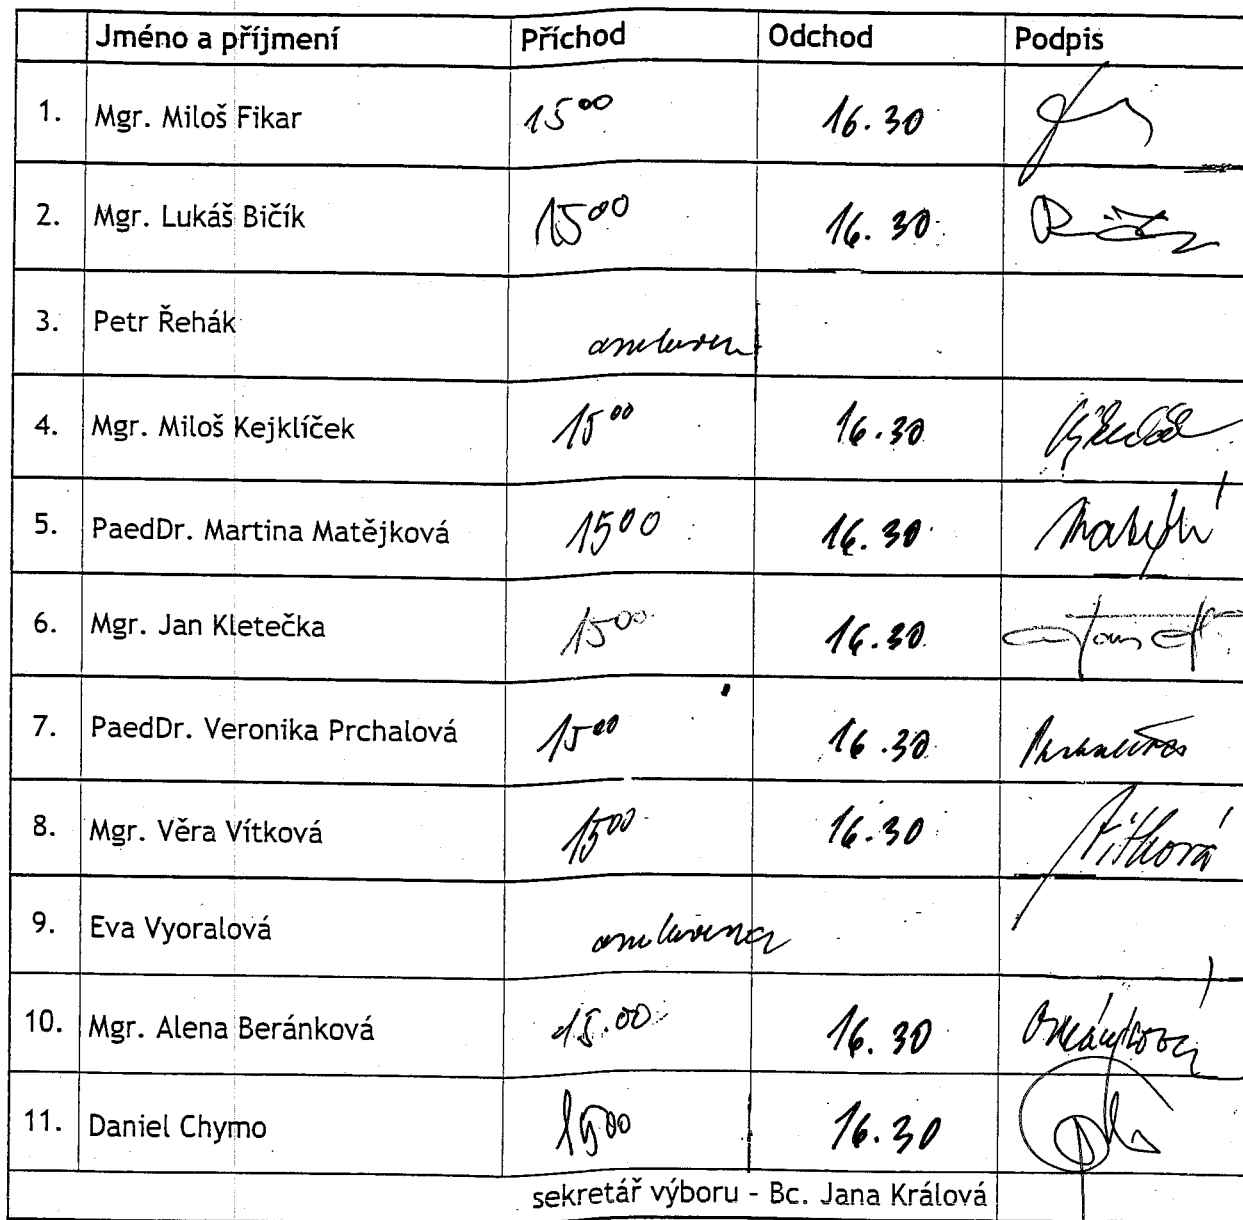 Jméno a příjmení Příchod Odchod Podpis
1. Mgr. Miloš Fikar 15⁰⁰ 16.30
2. Mgr. Lukáš Bičík 15⁰⁰ 16.30
3. Petr Řehák omluven
4. Mgr. Miloš Kejklíček 15⁰⁰ 16.30
5. PaedDr. Martina Matějková 15⁰⁰ 16.30
6. Mgr. Jan Kletečka 15⁰⁰ 16.30
7. PaedDr. Veronika Prchalová 15⁰⁰ 16.30
8. Mgr. Věra Vítková 15⁰⁰ 16.30 Vítková
9. Eva Vyoralová omluvena
10. Mgr. Alena Beránková 15.00 16.30
11. Daniel Chymo 15⁰⁰ 16.30
sekretář výboru - Bc. Jana Králová